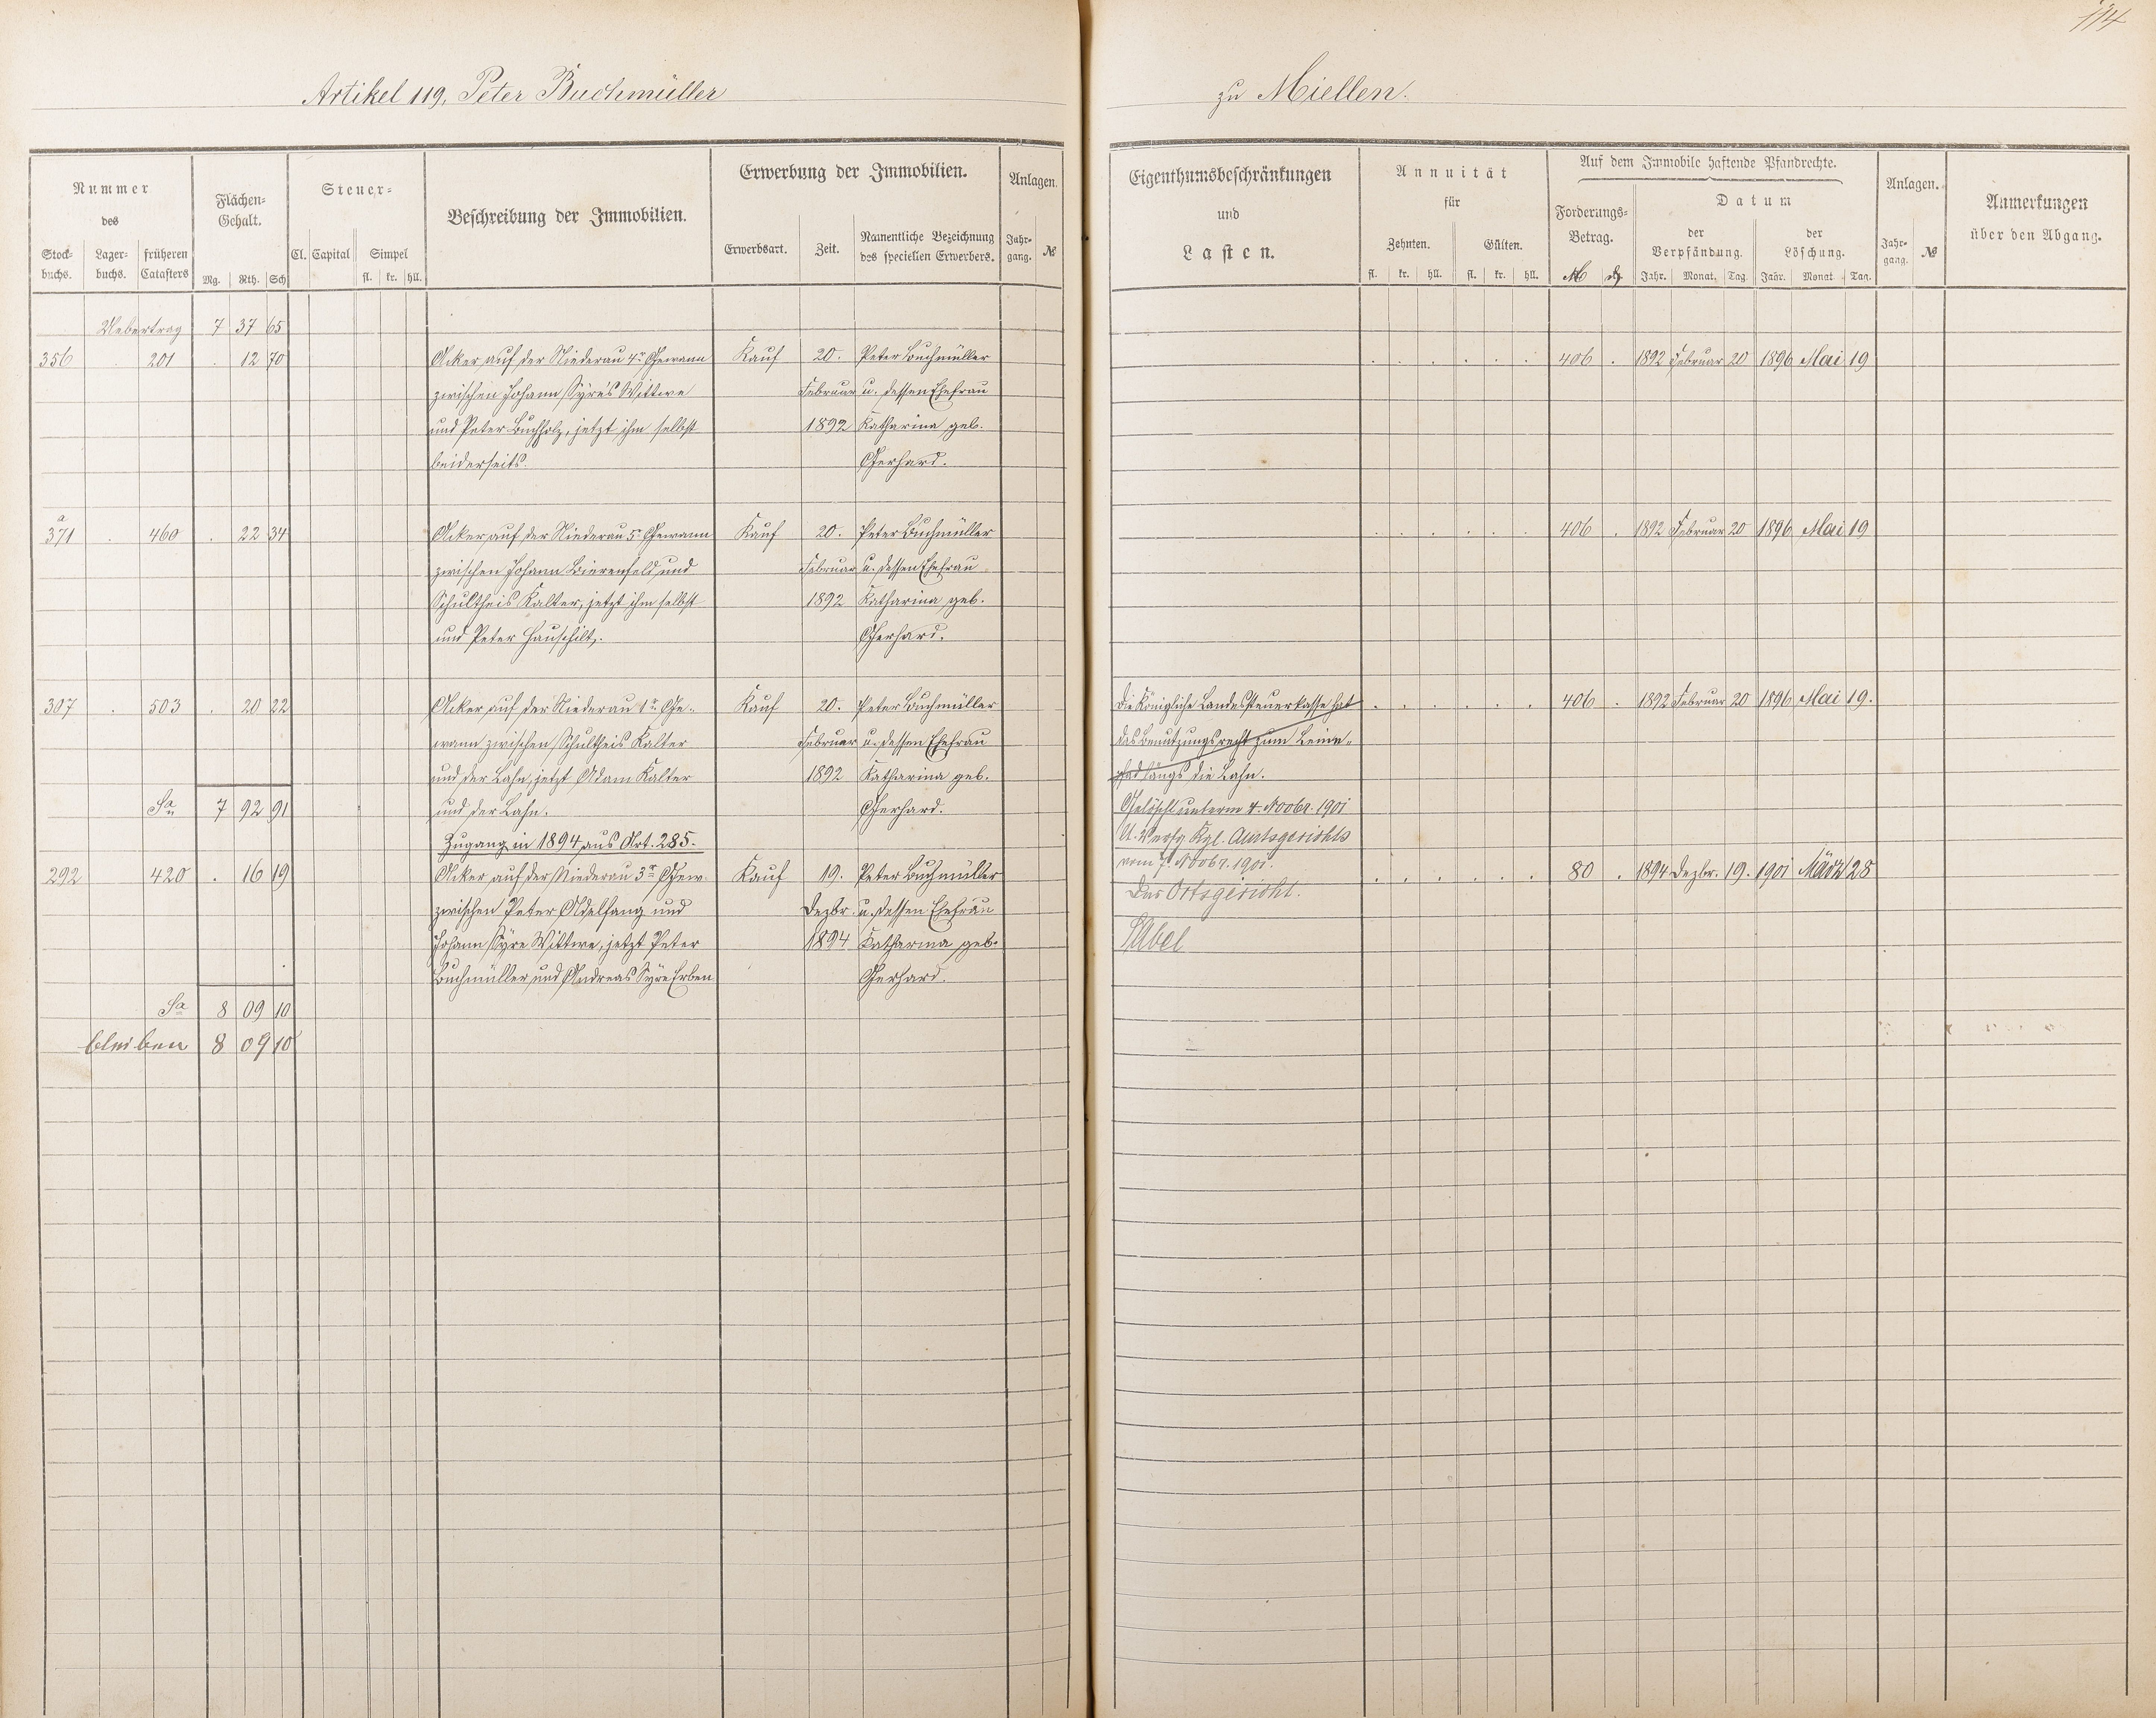 114
Artikel 119. Peter Buchmüller zu Miellen.
Nummer des
Stock-buchs. Lager-buchs. früheren Catasters
Flächen-Gehalt.
Mg. Rth. Sch
Steuer-
Cl. Capital Simpel
fl. kr. hll.
Beschreibung der Immobilien.
Erwerbung der Immobilien.
Erwerbsart. Zeit. Namentliche Bezeichnung des speciellen Erwerbers.
Anlagen.
Jahr-gang. №
Eigenthumsbeschränkungen
und
Lasten.
Annuität
für
Zehnten. Gülten.
fl. kr. hll. fl. kr. hll.
Auf dem Immobile haftende Pfandrechte.
Forderungs-Betrag.
M ₰
Datum
der Verpfändung. der Löschung.
Jahr. Monat. Tag. Jahr. Monat Tag.
Anlagen.
Jahr-gang. №
Anmerkungen
über den Abgang.
Uebertrag 7 37 65
356 . 201 . 12 70 Acker auf der Niederau 4r Gewann Kauf 20. Peter Buchmüller . . . . . . 406 . 1892 Februar 20 1896 Mai 19
zwischen Johann Syre's Wittwe Februar u. dessen Ehefrau
und Peter Buchholz, jetzt ihm selbst 1892 Katharina geb.
beiderseits. Gerhard.
a
371 . 460 . 22 34 Acker auf der Niederau 5r Gewann Kauf 20. Peter Buchmüller . . . . . . 406 . 1892 Februar 20 1896 Mai 19
zwischen Johann Bierenfeld und Februar u. dessen Ehefrau
Schultheis Kalter, jetzt ihm selbst 1892 Katharina geb.
und Peter Hauschilt. Gerhard.
307 . 503 . 20 22 Acker auf der Niederau 1r Ge- Kauf 20. Peter Buchmüller die Königliche Landessteuerkasse hat . . . . . . 406 . 1892 Februar 20 1896 Mai 19.
wann zwischen Schultheis Kalter Februar u. dessen Ehefrau das Benutzungsrecht zum Lein-
und der Lahn, jetzt Adam Kalter 1892 Katharina geb. pfad längs die Lahn.
Sa 7 92 91 und der Lahn. Gerhard. Gelöscht unterm 7. Novbr. 1901
Zugang in 1894 aus Art. 285. U. Verfg Kgl. Amtsgerichts
vom 7. Novbr. 1901.
292 420 . 16 19 Acker auf der Niederau 3r Gew. Kauf 19. Peter Buchmüller . . . . . . 80 . 1894 Dezbr. 19. 1901 März 28
Das Ortsgericht.
zwischen Peter Adelfang und Dezbr. u. dessen Ehefrau
Johann Syre Wittwe, jetzt Peter 1894 Katharina geb. Abel
Buchmüller und Andreas Syre Erben Gerhard.
Sa 8 09 10
bleiben 8 09 10